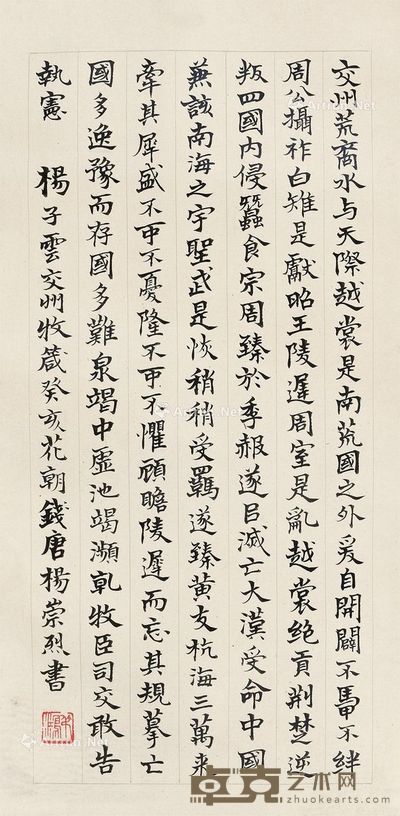 交州荒裔水与天際越裳是南荒國之外爰自開闢不羈不絆
周公攝祚白雉是獻昭王陵遲周室是亂越裳絶貢荆楚逆
叛四國內侵蠶食宗周臻於季赧遂㠯滅亡大漢受命中國
兼該南海之宇聖武是恢稍稍受羈遂臻黄支杭海三萬来
牽其犀盛不可不憂隆不可不懼顧瞻陵遲而忘其規摹亡
國多逸豫而存國多難泉竭中虛池竭瀕乹牧臣司交敢告
執憲 楊子雲交州牧箴癸亥花朝錢唐楊崇烈書
卓克艺术网
zhuokearts.com